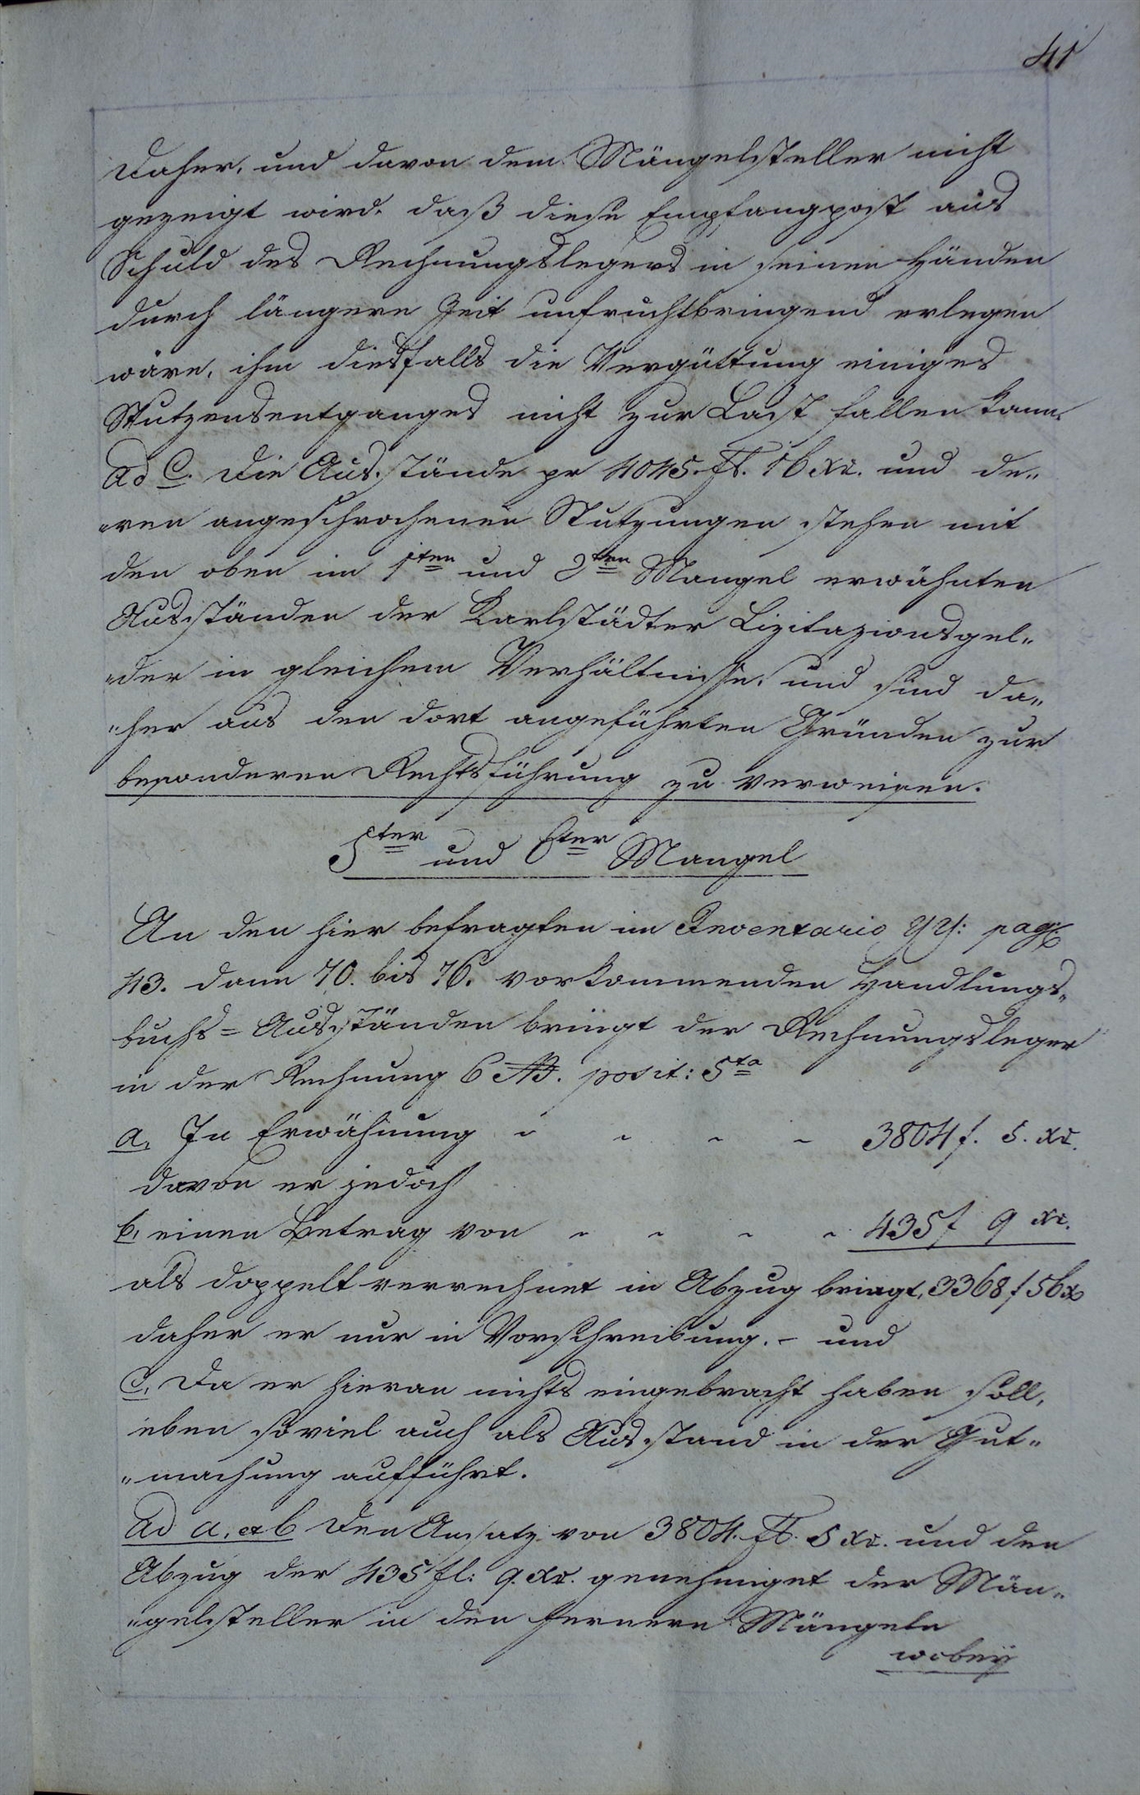 41
Daher, und davon dem Mängelsteller nicht
gezeigt wird, daß diese Empfangspost aus
Schuld des Rechnungslegers in seinen Händen
durch längere Zeit unfruchtbringend erlegen
wäre, ihm diesfalls die Vergüttung einiges
Nutzensentganges nicht zur Last fallen kann.
ad C. Die Ausstände pr 4045. fl. 16 xr. und de„
„ren angesprochenen Nutzungen stehen mit
den oben im 1ten und 2ten Mangel erwähnten
Ausständen der Karlstädter Lizitazionsgel„
„der in gleichem Verhältnisse, und sind da„
„her aus den dort angeführten Gründen zur
besonderen Rechtsführung zu verweisen.
5ter und 6ter Mangel
An den hier befragten im Inventario YY: pag:
43. dann 70. bis 76. vorkommenden Handlungs„
buchs=Ausständen bringt der Rechnungsleger
in der Rechnung 6 posit: 5ta
a, In Erwähnung " " " " 3804 f. 5. xr.
davon er jedoch
b, einen Betrag von " " " " 435 f 9 xr.
als doppelt verrechnet in Abzug bringt, 3368 f 56 x
daher er nur in Vorschreibung. – und
C, Da er hieran nichts eingebracht haben soll,
eben soviel auch als Ausstand in der Gut„
„machung aufführt.
ad a, et b Den Ansatz von 3804. fl. 5 xr. und den
Abzug der 435 fl: 9. xr. genehmiget der Män„
„gelsteller in den fernern Mängeln
wobey